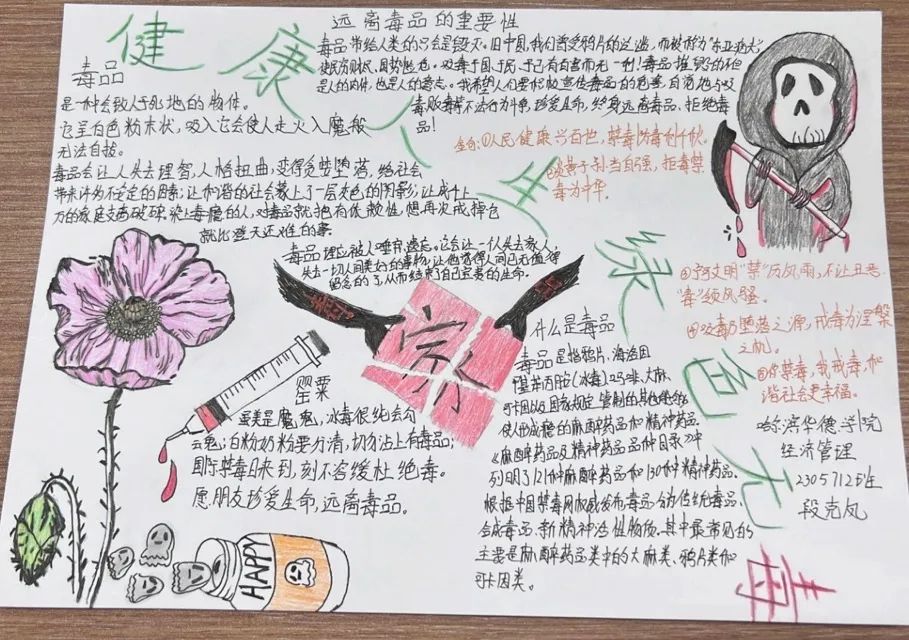 健康人生 绿色无毒
远离毒品的重要性
毒品带给人类的只会是毁灭。旧中国,我们曾受鸦片的
而被称为"东亚病夫"
吸毒于国、于民、于己有百害而无一利!毒品摧毁的不但
是人的肉体,也是人的意志。
珍爱生命,终身远离毒品、拒绝毒
品!
毒品
是一种会致人于死地的物体。
它呈白色粉末状,吸入它会使人走火入魔般
无法自拔。
毒品会让人失去理智,人格扭曲,变得贪婪堕落,给社会
带来许多不安定的因素;让和谐的社会蒙上了一层灰色的阴影;让成千上
万的家庭支离破碎
想再次戒掉它
就比登天还难的事
①人民健康兴百世,禁毒防毒利千秋
炎黄子孙当自强,拒毒禁
毒为中华。
毒品理应被人唾弃、遗忘。它会让一个人失去家人,
失去一切人间美好的事物;让他觉得人间已无值得
留念的了,从而结束了自己宝贵的生命。
毒
品
家
什么是毒品
毒品是指鸦片、海洛因
甲基苯丙胺(冰毒)、吗啡、大麻、
可卡因以及国家规定管制的其他能够
使人形成瘾的麻醉药品和精神药品。
《麻醉药品及精神药品品种目录》中
列明了121种麻醉药品和130种精神药品。
根据中国禁毒网权威发布,毒品分为传统毒品、
合成毒品、新精神活性物质。其中最常见的
主要是麻醉药品类中的大麻类、鸦片类和
可卡因类。
"禁"历风雨,不让丑恶
"毒"领风骚。
吸毒乃堕落之源,戒毒为涅槃
之机。
你禁毒,我戒毒,和
谐社会更幸福。
哈尔滨华德学院
经济管理
2305712班
段克凤
罂粟
虽美是魔鬼,冰毒很纯会勾
去魂;白粉奶粉要分清,切勿沾上有毒品;
国际禁毒日来到,刻不容缓杜绝毒。
愿朋友珍爱生命,远离毒品。
HAPPY